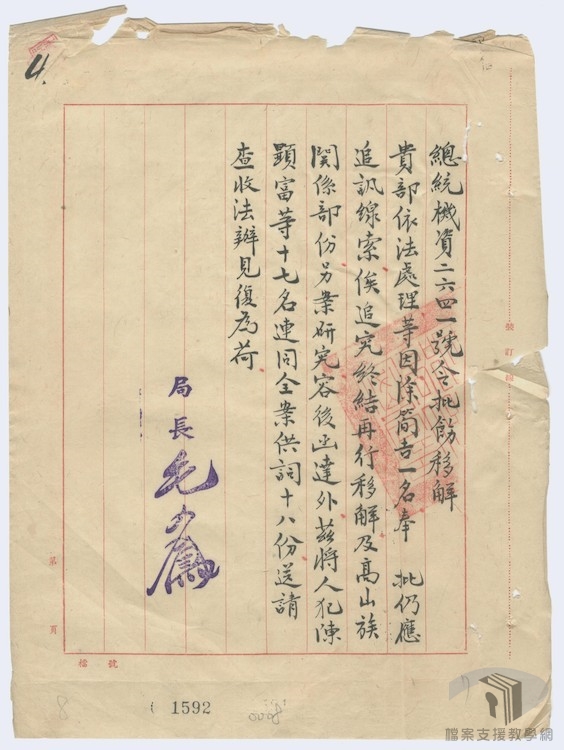 4.
總統機資二六四一號令批飭移解
貴部依法處理等因除簡吉一名奉　批仍應
追訊線索俟追究終結再行移解及高山族
関係部份另案研究容後函達外茲將人犯陳
顕富等十七名連同全案供詞十八份送請
查收法辦見復為荷
局長毛人鳳
裝訂線
第　頁
檔　號
1592
8
檔案支援教學網